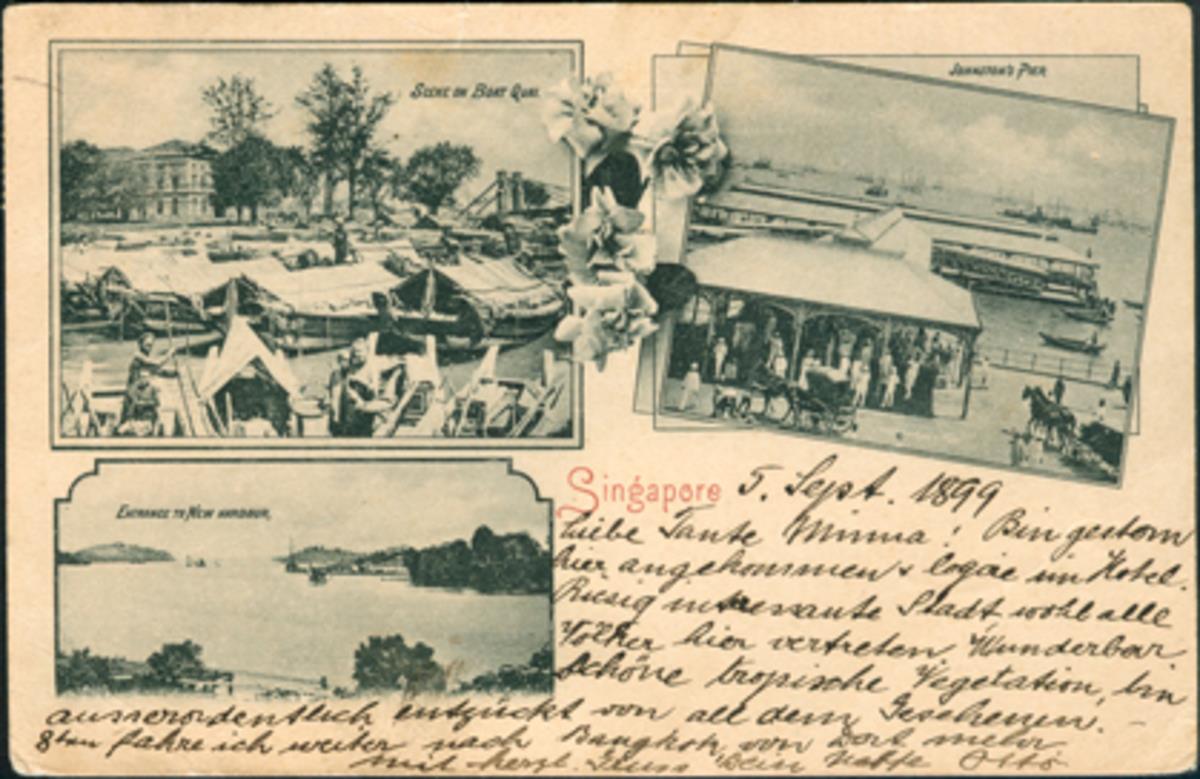 SCENE ON BOAT QUAI.
JOHNSTON'S PIER
ENTRANCE TO NEW HARBOUR.
Singapore 5. Sept. 1899
Liebe Tante Minna! Bin gestern
hier angekommen & logire im Hotel.
Riesig interessante Stadt, wohl alle
Völker hier vertreten. Wunderbar
schöne tropische Vegetation, bin
ausserordentlich entzückt von all dem Gesehenen. –
8ten fahre ich weiter nach Bangkok, von dort mehr
mit herzl. Gruss Dein Neffe Otto